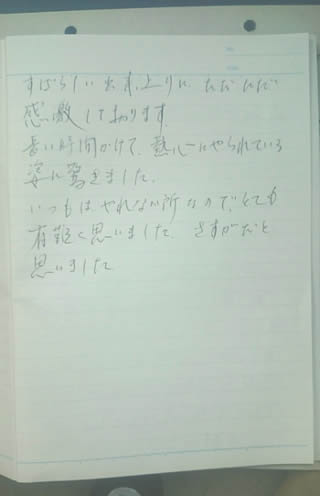 すばらしい出来上りに、ただただ
感激しております。
長い時間かけて、熱心にやられている
姿に驚きました。
いつもは、やれない所なので、とても
有難く思いました。さすがだと
思いました